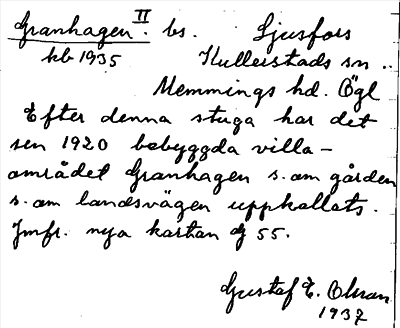 Granhagen II. bs. Ljusfors
kb 1935 Kullerstads sn ..
Memmings hd. Ögl
Efter denna stuga har det
sen 1920 bebyggda villa-
området Granhagen s. om gården
s. om landsvägen uppkallats.
Jmfr. nya kartan 55.
Gustaf E. Olsson
1937